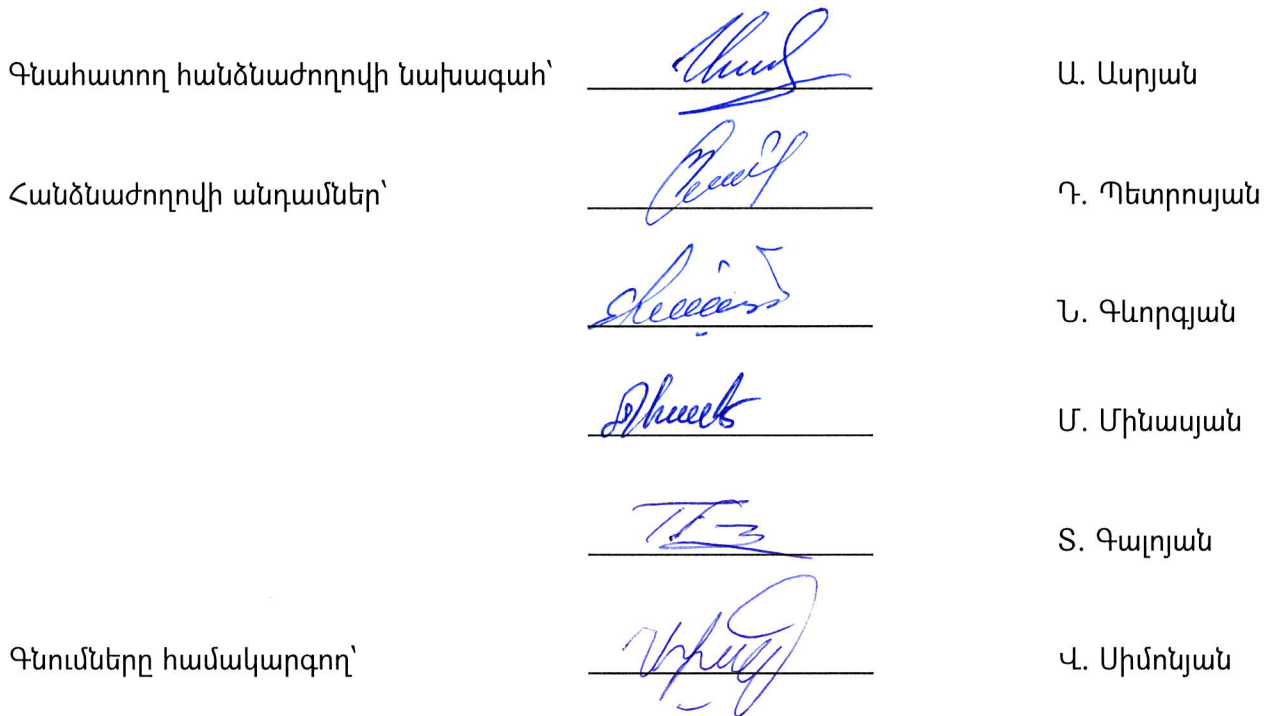 Գնահատող հանձնաժողովի նախագահ՝ Ա. Ասրյան
Հանձնաժողովի անդամներ՝ Դ. Պետրոսյան
Ն. Գևորգյան
Մ. Մինասյան
Տ. Գալոյան
Գնումները համակարգող՝ Վ. Սիմոնյան